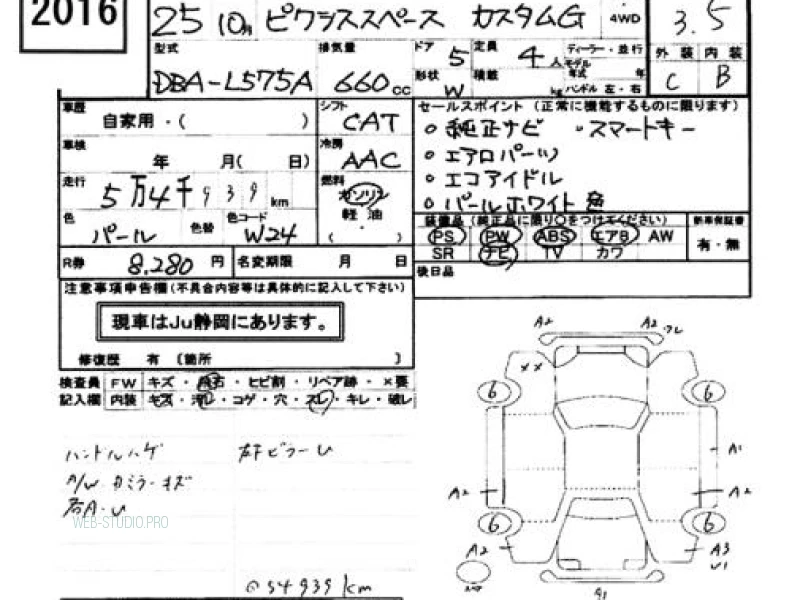 2016
25 10月 ピクシススペース カスタムG 4WD 3.5
型式 DBA-L575A
排気量 660 cc
ドア 5 定員 4人 ディーラー・並行
形状 W 積載 kg モデル年式 年
ハンドル 左・右
外装 内装
C B
車歴 自家用・( )
シフト CAT
車検 年 月( 日)
冷房 AAC
走行 5万4千939 km
燃料 ガソリン
軽油
( ・ )
色 パール 色替 色コード W24
R券 8,280 円 名変期限 月 日
セールスポイント (正常に機能するものに限ります)
○純正ナビ ・スマートキー
○エアロパーツ
○エコアイドル
○パールホワイト色
装備品 (純正品に限り○をつけてください) 新車保証書
PS PW ABS エアB AW 有・無
SR ナビ TV カワ
後日品
注意事項申告欄(不具合内容等は具体的に記入して下さい)
現車はJu静岡にあります。
修復歴 有 〔箇所 〕
検査員 FW キズ・飛石・ヒビ割・リペア跡・×要
記入欄 内装 キズ・汚レ・コゲ・穴・スレ・キレ・破レ
ハンドルハゲ 左下ピラーU
キズ
右A・U
WEB-STUDIO.PRO
54939km
A2 A2
××
6 6
A1
A2 A2
6 6
A2 A3
U1